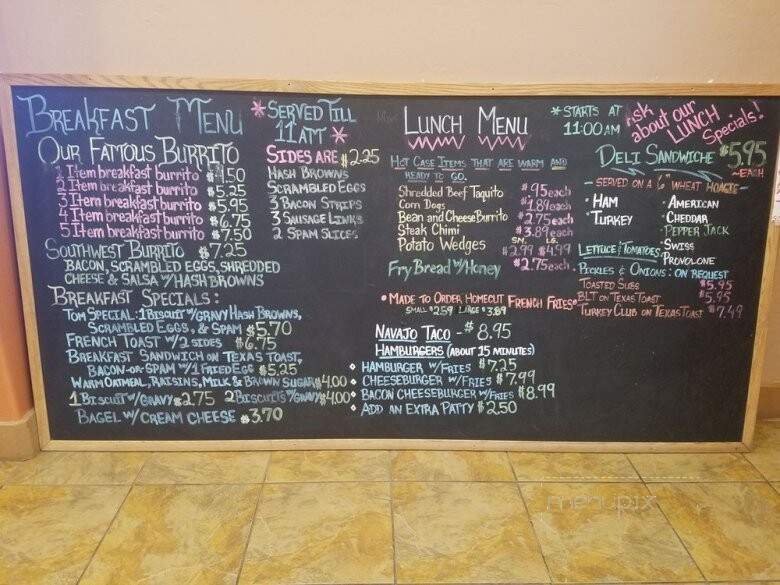 BREAKFAST MENU
*SERVED TILL
11AM*
OUR FAMOUS BURRITO
1 Item breakfast burrito $4.50
2 Item breakfast burrito $5.25
3 Item breakfast burrito $5.95
4 Item breakfast burrito $6.75
5 Item breakfast burrito $7.50
SIDES ARE $2.25
HASH BROWNS
SCRAMBLED EGGS
3 BACON STRIPS
3 SAUSAGE LINKS
2 SPAM SLICES
SOUTHWEST BURRITO $7.25
BACON, SCRAMBLED EGGS, SHREDDED
CHEESE & SALSA W/HASH BROWNS
BREAKFAST SPECIALS:
TOM SPECIAL: 1 BISCUIT W/GRAVY HASH BROWNS,
SCRAMBLED EGGS, & SPAM $5.70
FRENCH TOAST W/2 SIDES $6.75
BREAKFAST SANDWICH ON TEXAS TOAST,
BACON-OR-SPAM W/1 FRIED EGG $5.25
WARM OATMEAL, RAISINS, MILK & BROWN SUGAR $4.00
1 BISCUIT W/GRAVY $2.75 2 BISCUITS W/GRAVY $4.00
BAGEL W/CREAM CHEESE $3.70
LUNCH MENU
*STARTS AT
11:00AM
Ask about our LUNCH Specials!
HOT CASE ITEMS THAT ARE WARM AND
READY TO GO.
Shredded Beef Taquito $.95each
Corn Dogs $1.89each
Bean and Cheese Burrito $2.75each
Steak Chimi $3.89each
Potato Wedges SM. $2.99 LG. $4.99
Fry Bread W/Honey $2.75each
• MADE TO ORDER HOMECUT FRENCH FRIES*
SMALL $2.59 LARGE $3.89
NAVAJO TACO - $8.95
HAMBURGERS (ABOUT 15 MINUTES)
HAMBURGER W/FRIES $7.25
CHEESEBURGER W/FRIES $7.99
BACON CHEESEBURGER W/FRIES $8.99
ADD AN EXTRA PATTY $2.50
DELI SANDWICHE $5.95
~EACH
- SERVED ON A 6" WHEAT HOAGIE-
• HAM
• TURKEY
• AMERICAN
• CHEDDAR
• PEPPER JACK
• SWISS
• PROVOLONE
LETTUCE & TOMATOES
PICKLES & ONIONS: ON REQUEST
TOASTED SUBS $5.95
BLT ON TEXAS TOAST $5.95
TURKEY CLUB ON TEXAS TOAST $7.49
menupix